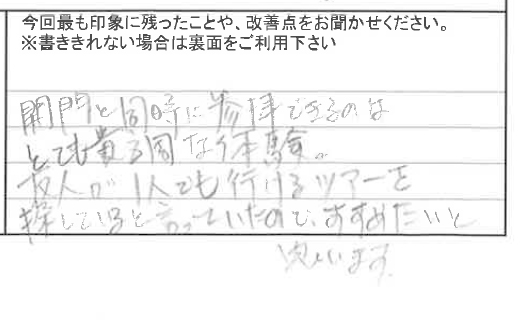 今回最も印象に残ったことや、改善点をお聞かせください。
※書ききれない場合は裏面をご利用下さい
開門と同時に参拝できるのは
とても貴重な体験。
友人が1人でも行けるツアーを
探していると言っていたので、すすめたいと
思います。